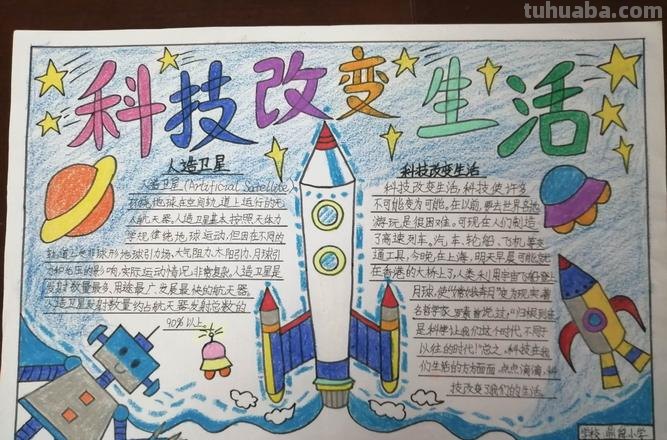 tuhuaba.com
科技改变生活
人造卫星
人造卫星(Artificial Satellite)
环绕地球在空间轨道上运行的无
人航天器。人造卫星基本按照天体力
学规律绕地球运动,但因在不同的
轨道上受非球形地球引力场、大气阻力、太阳引力、月球引
力和光压的影响,实际运动情况非常复杂。人造卫星是
发射数量最多、用途最广、发展最快的航天器。
人造卫星发射数量约占航天器发射总数的
90%以上。
科技改变生活
科技改变生活,科技使许多
不可能变为可能。在以前,要去世界各地
游玩是很困难。可现在人们制造
了高速列车。汽车、轮船、飞机等交
通工具,今晚在上海,明天早晨可能就
在香港的大桥上了,人类乘用宇宙飞船登上
月球,使“嫦娥奔月”变为现实。
名哲学家罗素曾说过,“归根到底
是科学让我们这个时代不同于
以往的时代!”总之,科技在我
们生活的方方面面,点点滴滴,科
技改变了我们的生活。
学校: 小学